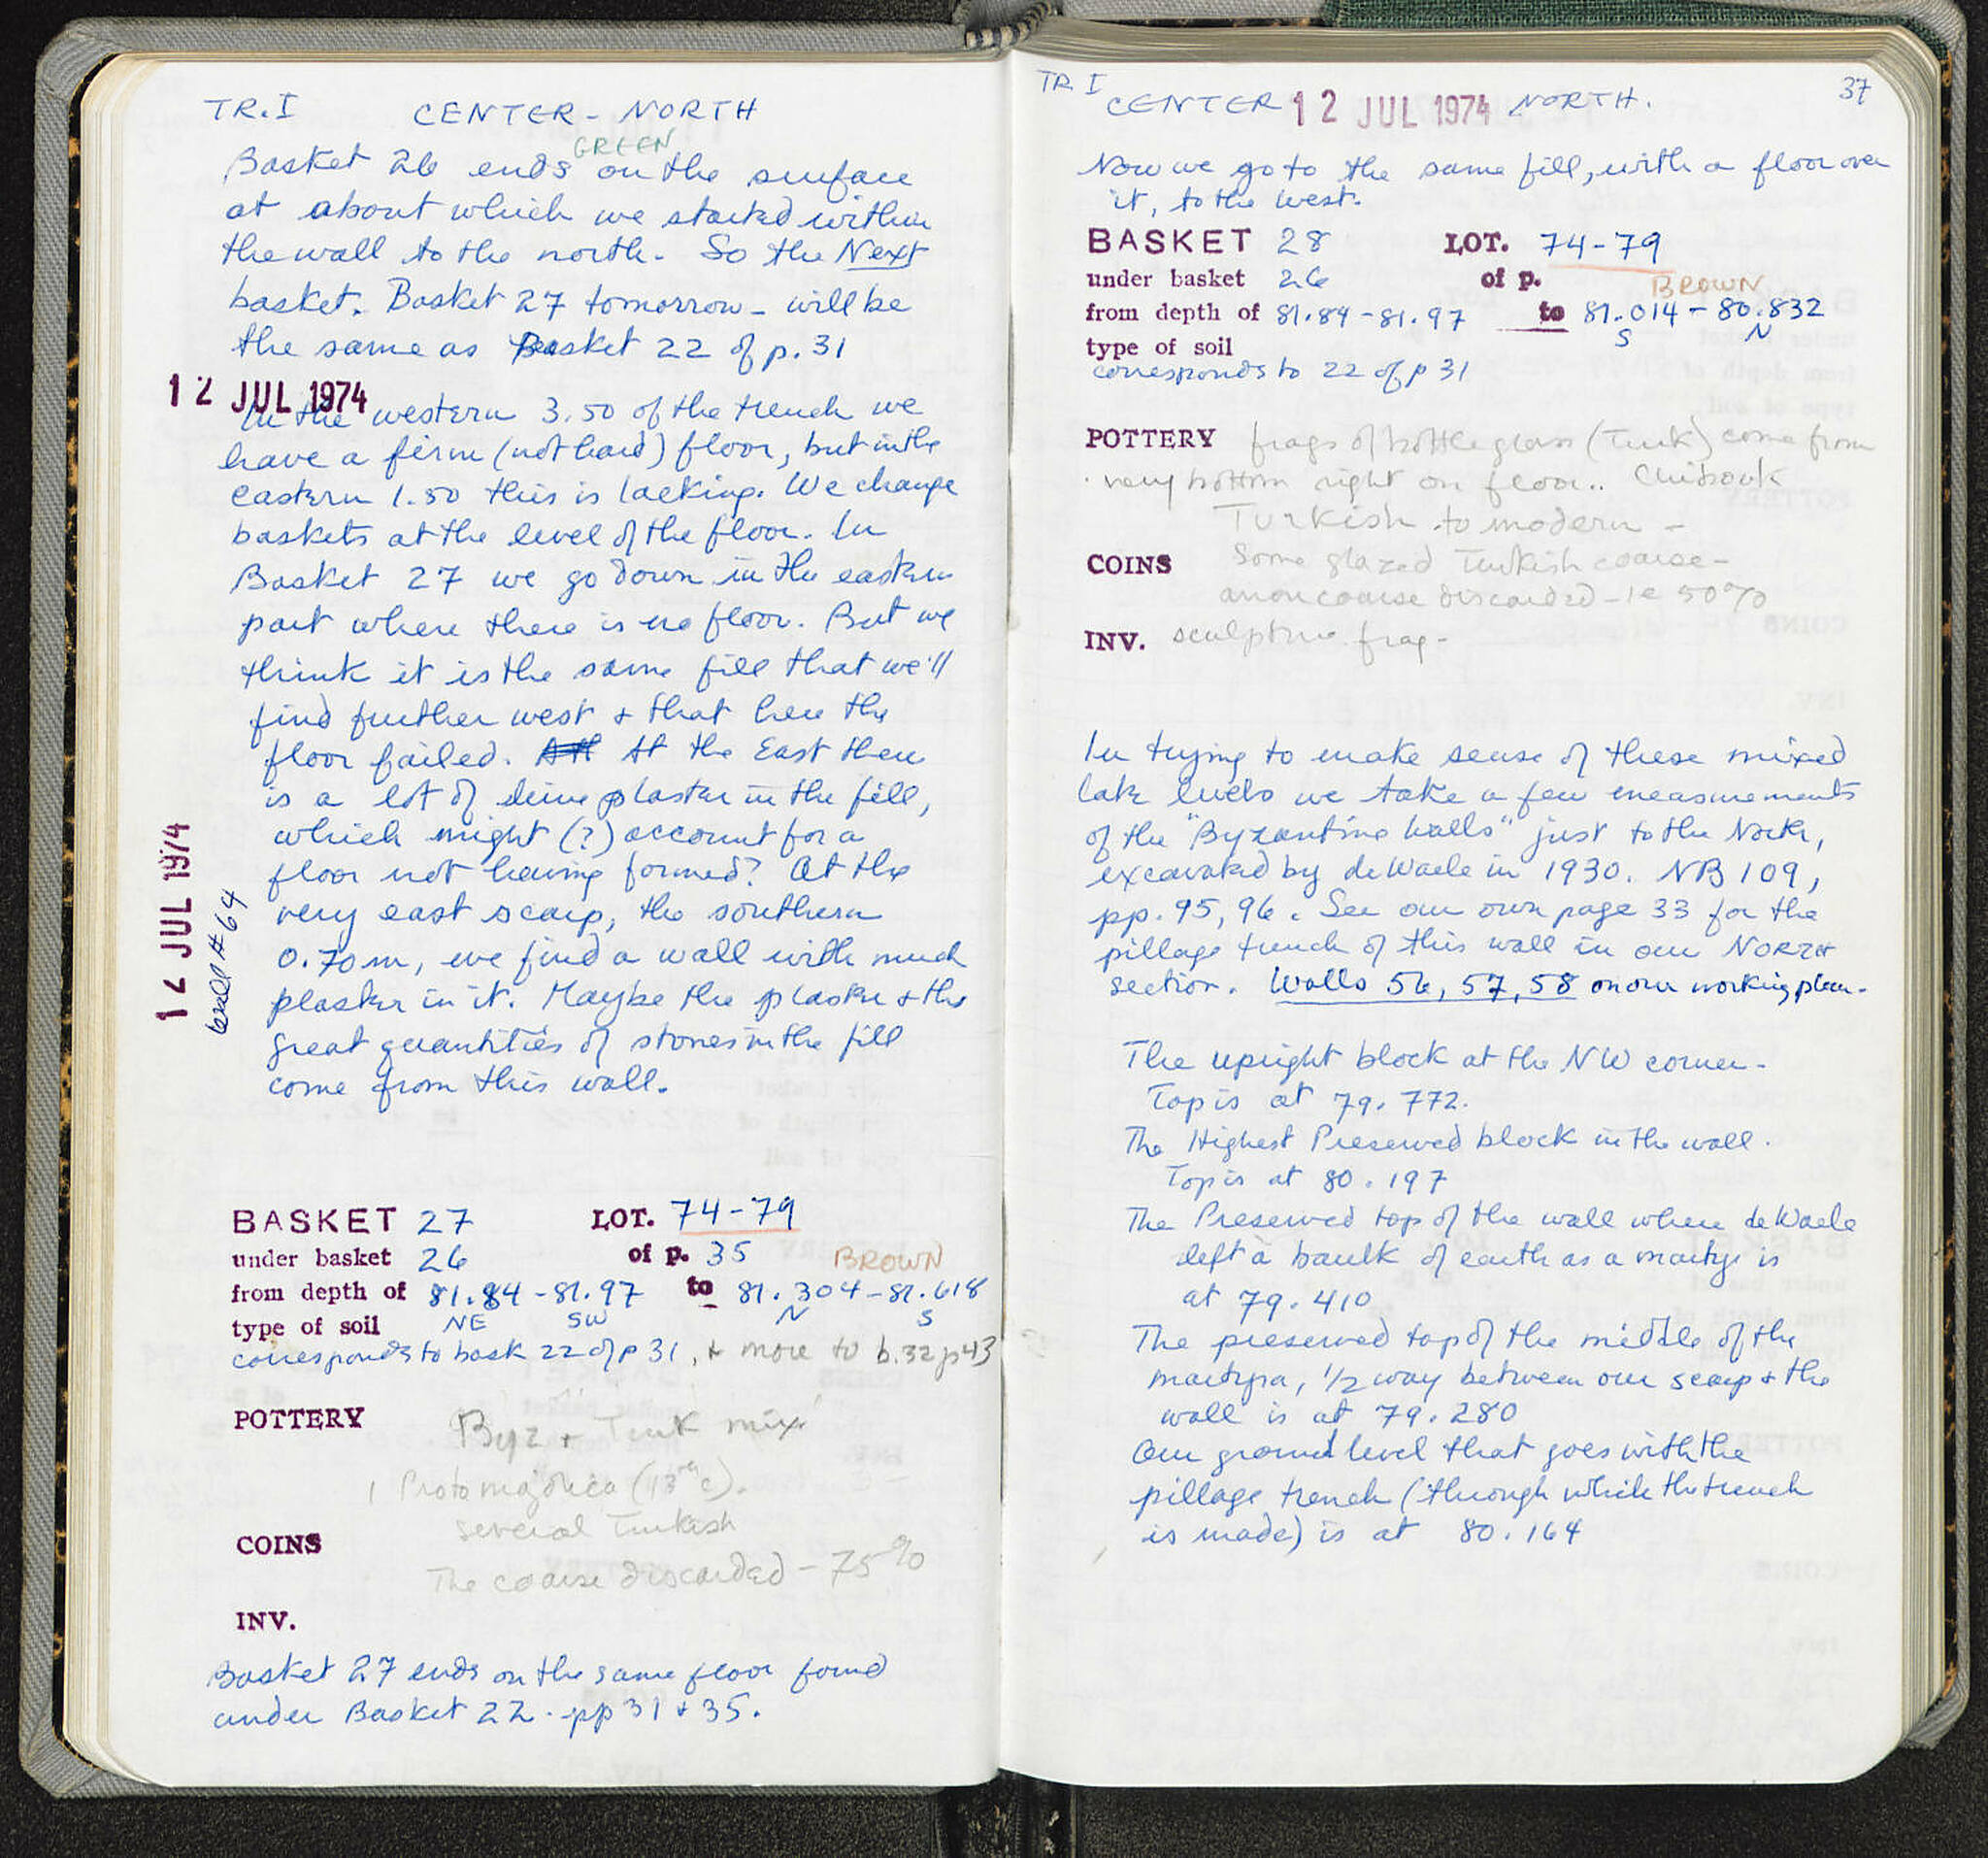 TR. I CENTER - NORTH
GREEN
Basket 26 ends on the surface
at about which we started within
the wall to the north. So the Next
basket. Basket 27 tomorrow - will be
the same as Basket 22 of p. 31
12 JUL 1974
In the western 3.50 of the trench we
have a firm (not hard) floor, but in the
eastern 1.50 this is lacking. We change
baskets at the level of the floor. In
Basket 27 we go down in the eastern
part where there is no floor. But we
think it is the same fill that we'll
find further west + that here the
floor failed. At the East there
is a lot of lime plaster in the fill,
which might (?) account for a
floor not having formed? At the
very east scarp, the southern
0.70m, we find a wall with much
plaster in it. Maybe the plaster + the
great quantities of stones in the fill
come from this wall.
12 JUL 1974
wall #64
BASKET 27 LOT. 74-79
under basket 26 of p. 35 BROWN
from depth of 81.84 - 81.97 to 81.304 - 81.618
type of soil NE SW N S
corresponds to bask 22 of p 31, + more to b. 32 p 43
POTTERY Byz + Turk mix
1 Protomajolica (13th c).
several Turkish
COINS
The coarse discarded - 75%
INV.
Basket 27 ends on the same floor found
under Basket 22. pp 31 + 35.
TR I 37
CENTER 12 JUL 1974 NORTH.
Now we go to the same fill, with a floor over
it, to the west.
BASKET 28 LOT. 74-79
under basket 26 of p. BROWN
from depth of 81.84 - 81.97 to 81.014 - 80.832
S N
type of soil
corresponds to 22 of p 31
POTTERY frags of bottle glass (Turk) come from
very bottom right on floor.. Chibouk
Turkish to modern -
COINS some glazed Turkish coarse -
coarse discarded - ie 50%
INV. sculpture frag -
In trying to make sense of these mixed
late levels we take a few measurements
of the "Byzantine Walls" just to the North,
excavated by deWaele in 1930. NB 109,
pp. 95, 96. See our own page 33 for the
pillage trench of this wall in our NORTH
section. Walls 56, 57, 58 on our working plan.
The upright block at the NW corner -
Top is at 79.772.
The Highest Preserved block in the wall.
Top is at 80.197
The Preserved top of the wall where deWaele
left a baulk of earth as a martys is
at 79.410
The preserved top of the middle of the
martyra, 1/2 way between our scarp + the
wall is at 79.280
Our ground level that goes with the
pillage trench (through which the trench
is made) is at 80.164